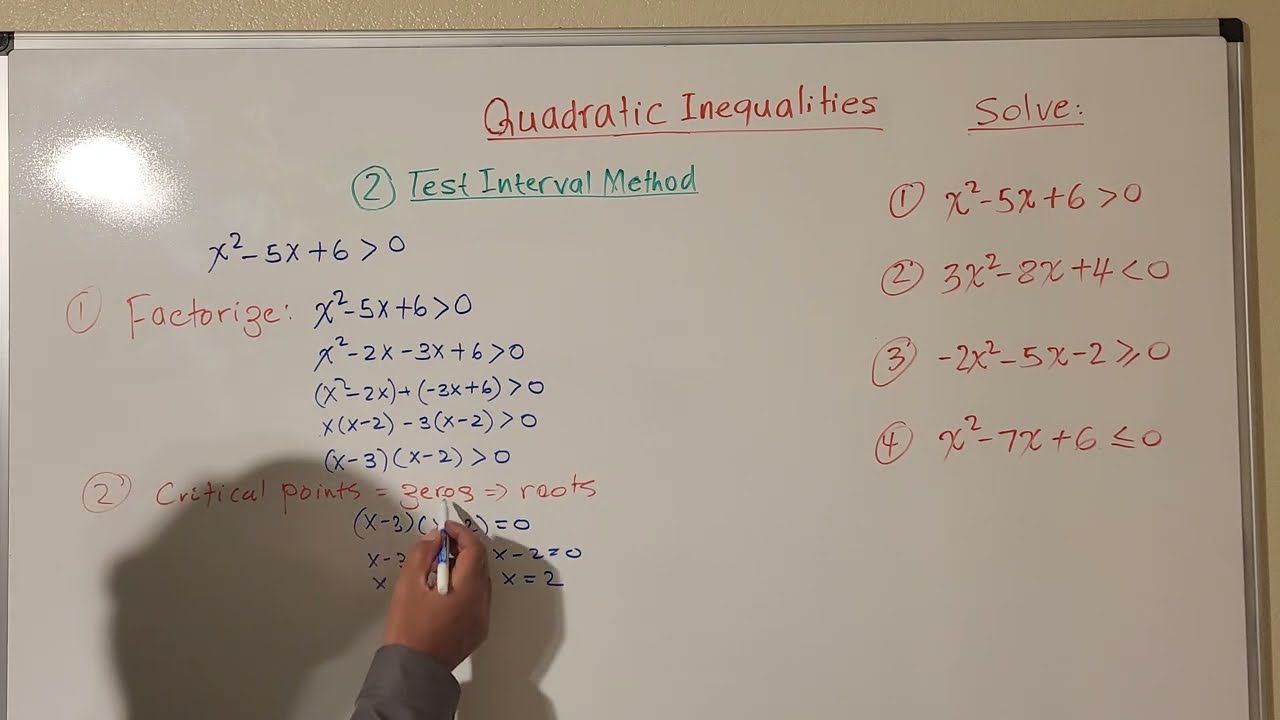 Quadratic Inequalities
② Test Interval Method
x²-5x+6>0
① Factorize: x²-5x+6>0
x²-2x-3x+6>0
(x²-2x)+(-3x+6)>0
x(x-2)-3(x-2)>0
(x-3)(x-2)>0
② Critical points = zeros => roots
(x-3)( 2)=0
x-3 x-2=0
x x=2
Solve:
① x²-5x+6>0
② 3x²-8x+4<0
③ -2x²-5x-2≥0
④ x²-7x+6≤0